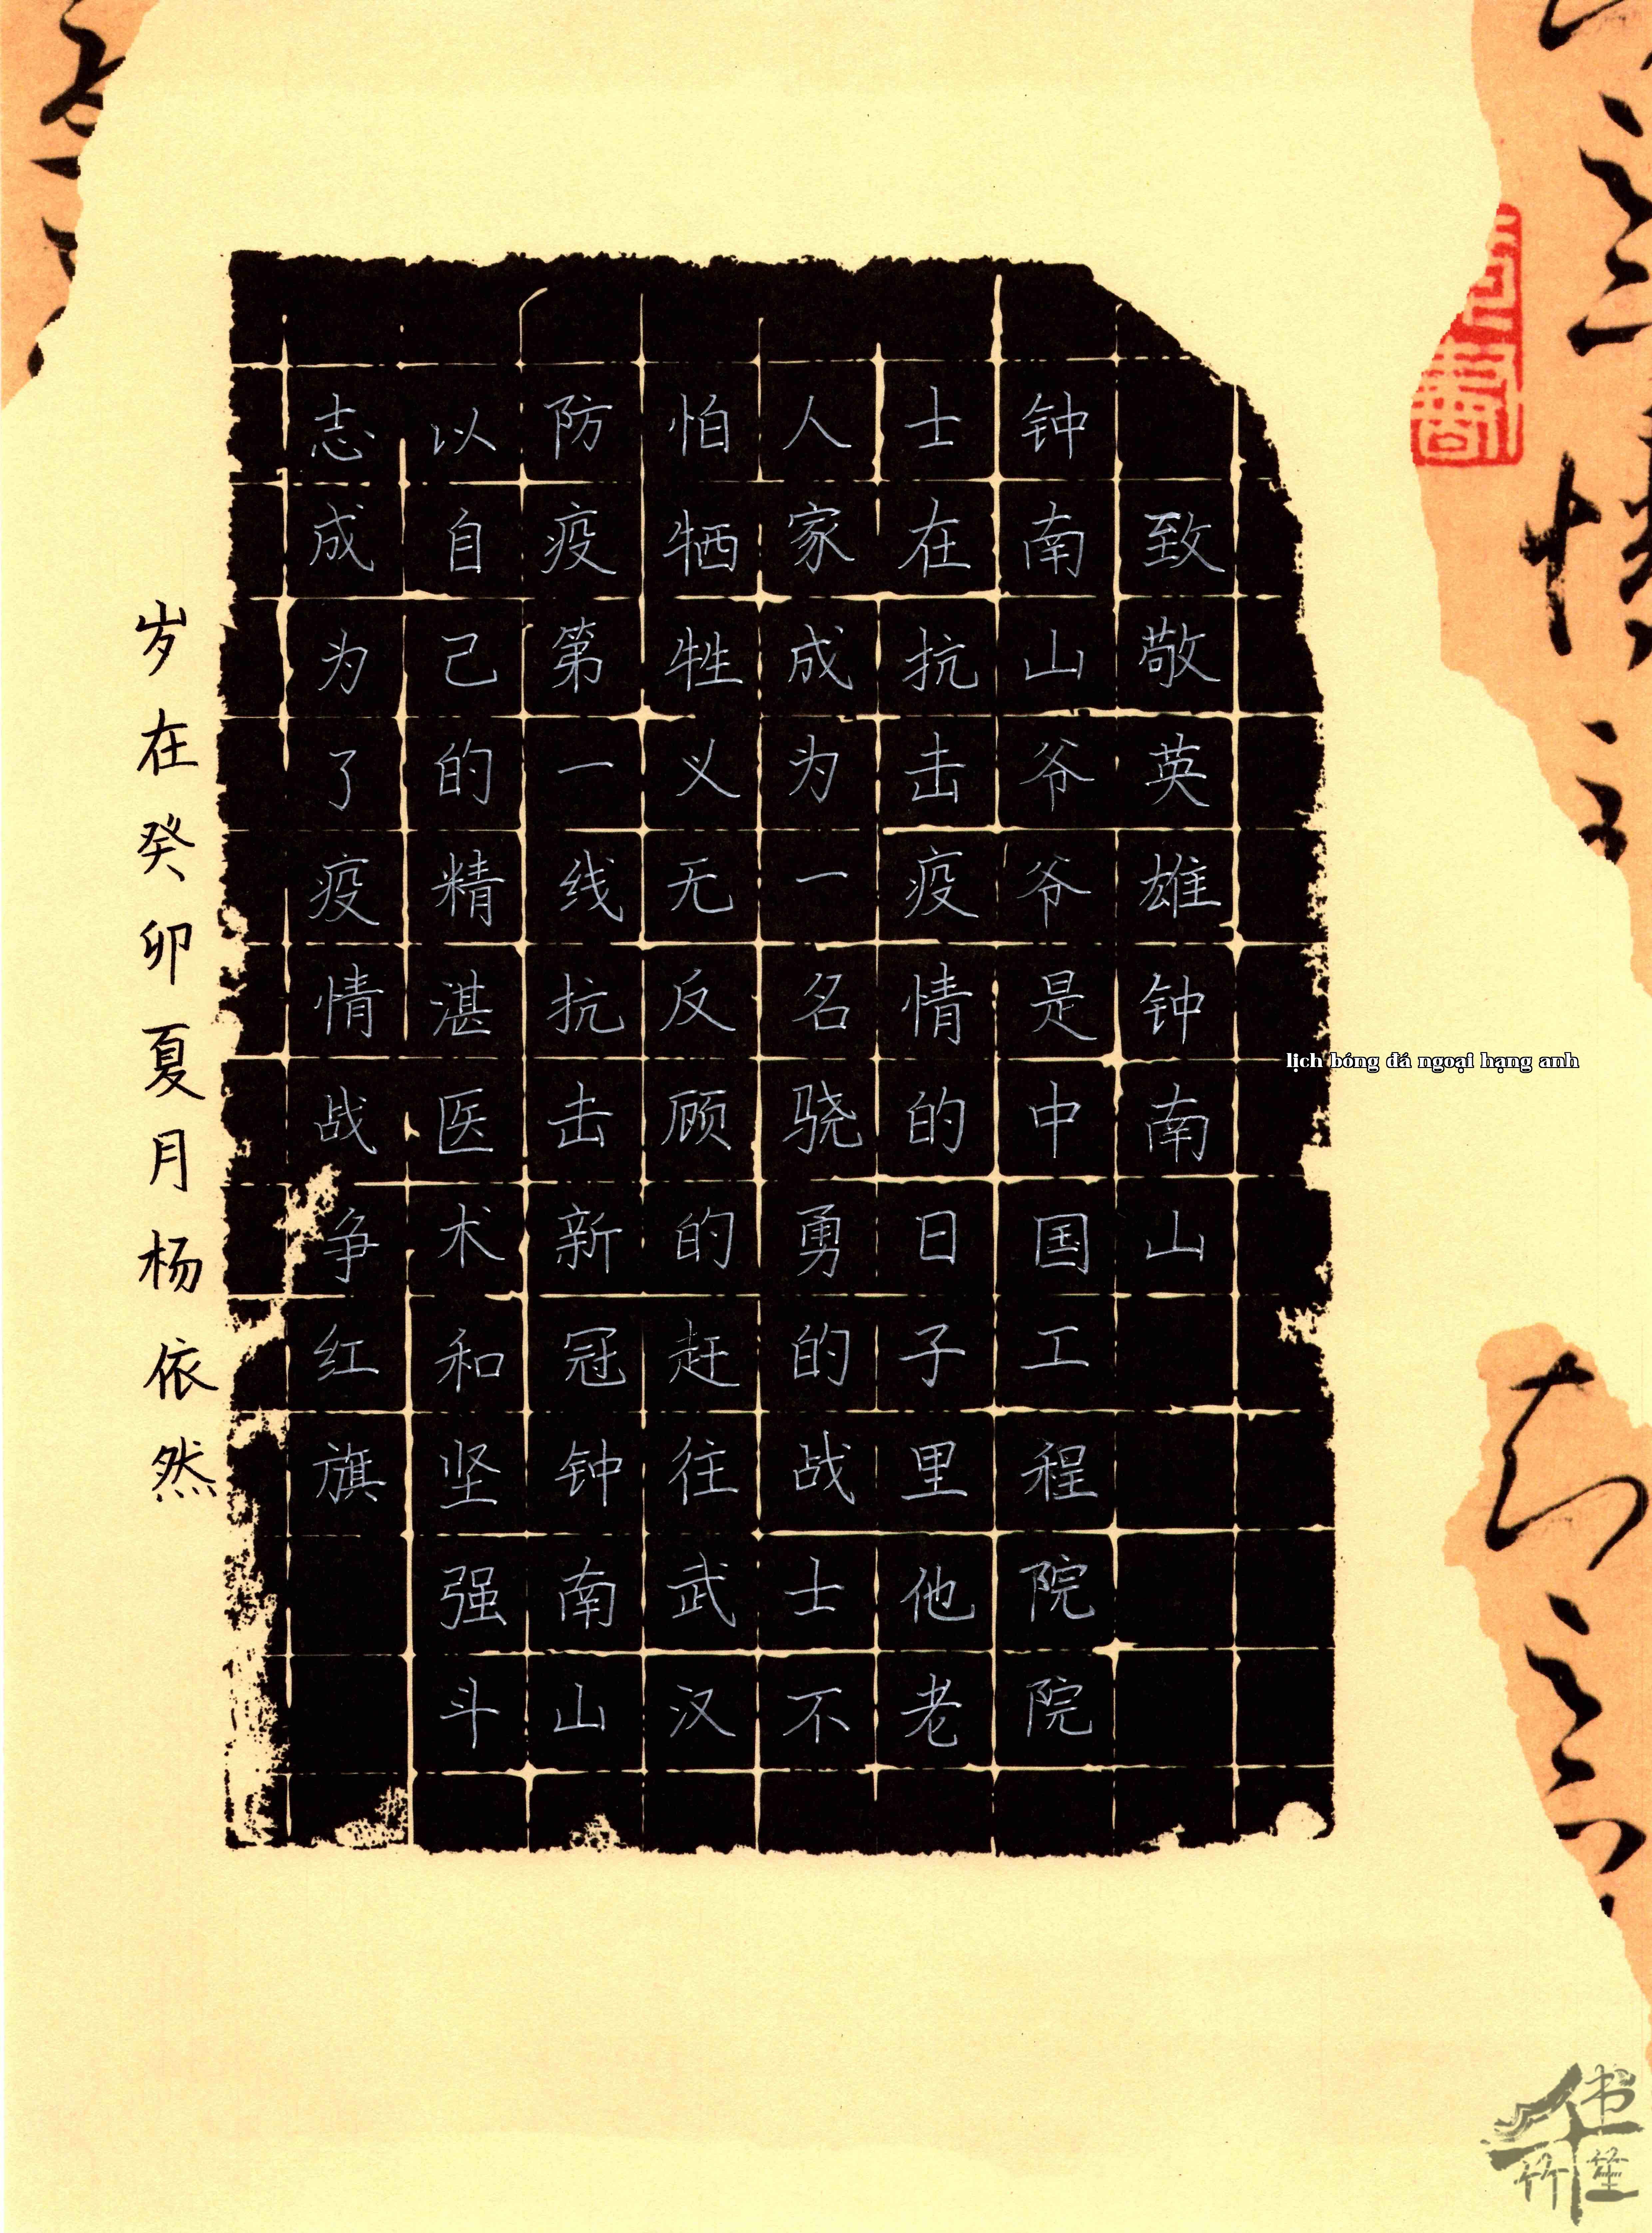 致敬英雄钟南山
钟南山爷爷是中国工程院院
士在抗击疫情的日子里他老
人家成为一名骁勇的战士不
怕牺牲义无反顾的赶往武汉
防疫第一线抗击新冠钟南山
以自己的精湛医术和坚强斗
志成为了疫情战争红旗
岁在癸卯夏月杨依然
lịch bóng đá ngoại hạng anh